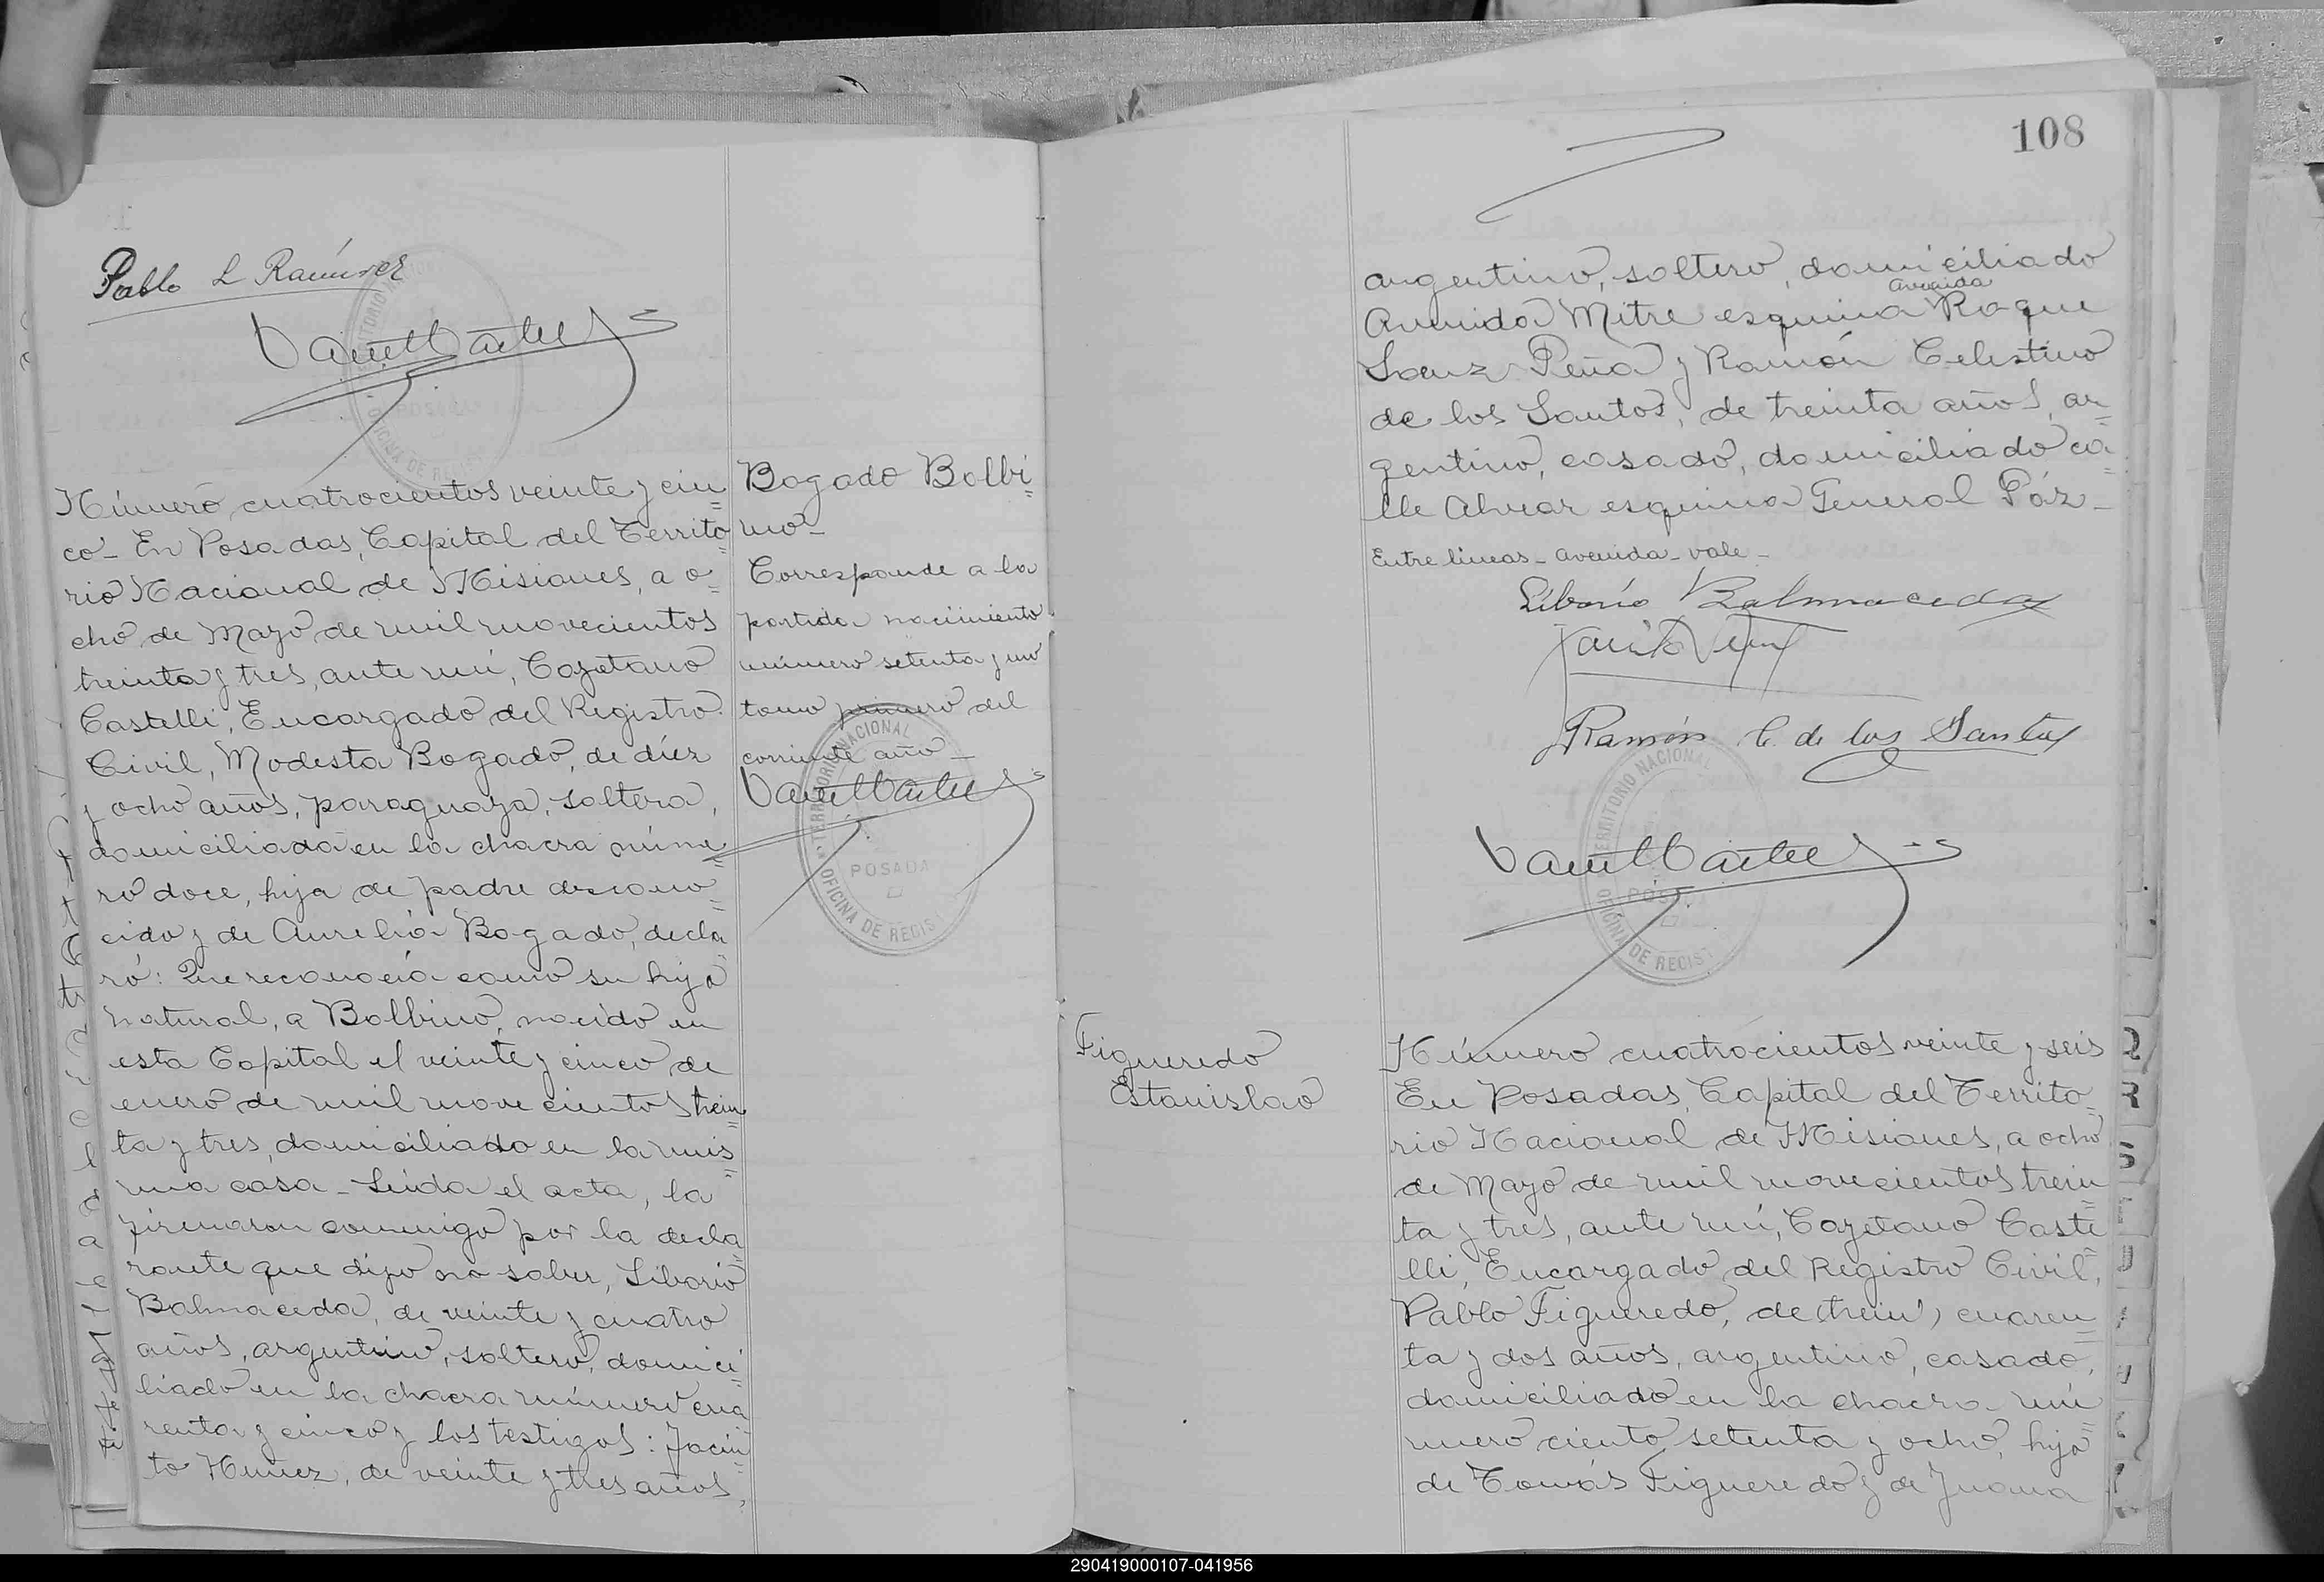 Pablo L Ramírez
Número cuatrocientos veinte y cin=
co_ En Posadas, Capital del Territo=
rio Nacional de Misiones, a o=
cho de Mayo de mil novecientos
treinta y tres, ante mí, Cayetano
Castelli, Encargado del Registro
Civil, Modesta Bogado, de diez
y ocho años, paraguaya, soltera,
domiciliada en la chacra núme=
ro doce, hija de padre descono=
cido y de Aurelia Bogado, decla
ró: Que reconocía como su hijo
natural, a Balbino, nacido en
esta Capital el veinte y cinco de
enero de mil novecientos trein=
ta y tres, domiciliado en la mis=
ma casa_ Leída el acta, la
firmaron conmigo por la decla=
rante que dijo no saber, Liborio
Balmaceda, de veinte y cuatro
años, argentino, soltero, domici=
liado en la chacra número cua
renta y cinco y los testigos: Jacin=
to Nuñez, de veinte y tres años,
Bogado Balbi=
no_
Corresponde a la
partida nacimiento
número setenta y uno
tomo primero del
corriente año_
TERRITORIO NACIONAL
POSADA
OFICINA DE REGIS
108
argentino, soltero, domiciliado
avenida
Avenida Mitre esquina Roque
Saenz Peña y Ramón Celestino
de los Santos, de treinta años, ar=
gentino, casado, domiciliado ca=
lle Alvear esquina General Páz_
Entre líneas_ avenida_ vale_
Liborio Balmaceda
Ramón C. de los Santos
TERRITORIO NACIONAL
POS
OFICINA DE REGIS
Figueredo
Estanislao
Número cuatrocientos veinte y seis
En Posadas, Capital del Territo=
rio Nacional de Misiones, a ocho
de Mayo de mil novecientos trein
ta y tres, ante mí, Cayetano Caste=
lli, Encargado del Registro Civil,
Pablo Figueredo, de (trein) cuaren=
ta y dos años, argentino, casado,
domiciliado en la chacra nú=
mero ciento setenta y ocho, hijo
de Tomás Figueredo y de Juana
290419000107-041956